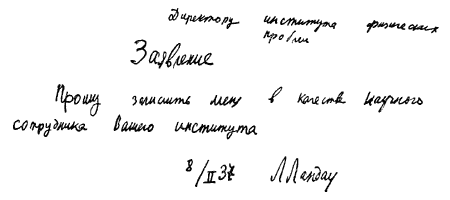 Директору института физических
проблем
Заявление
Прошу зачислить меня в качестве научного
сотрудника Вашего института
8/II 37 Л Ландау